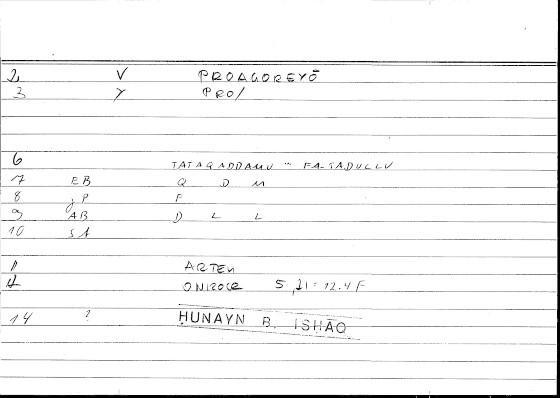 2 V PROAGOREYŌ
3 γ PRO/
6 TATAQADDAMU " FA-TADULLU
7 EB Q D M
8 jP F
9 AB D L L
10 SA
1 ARTEM
4 ONIROCR 5,21 = 12.4 F
14 ? ḤUNAYN B. ISḤĀQ